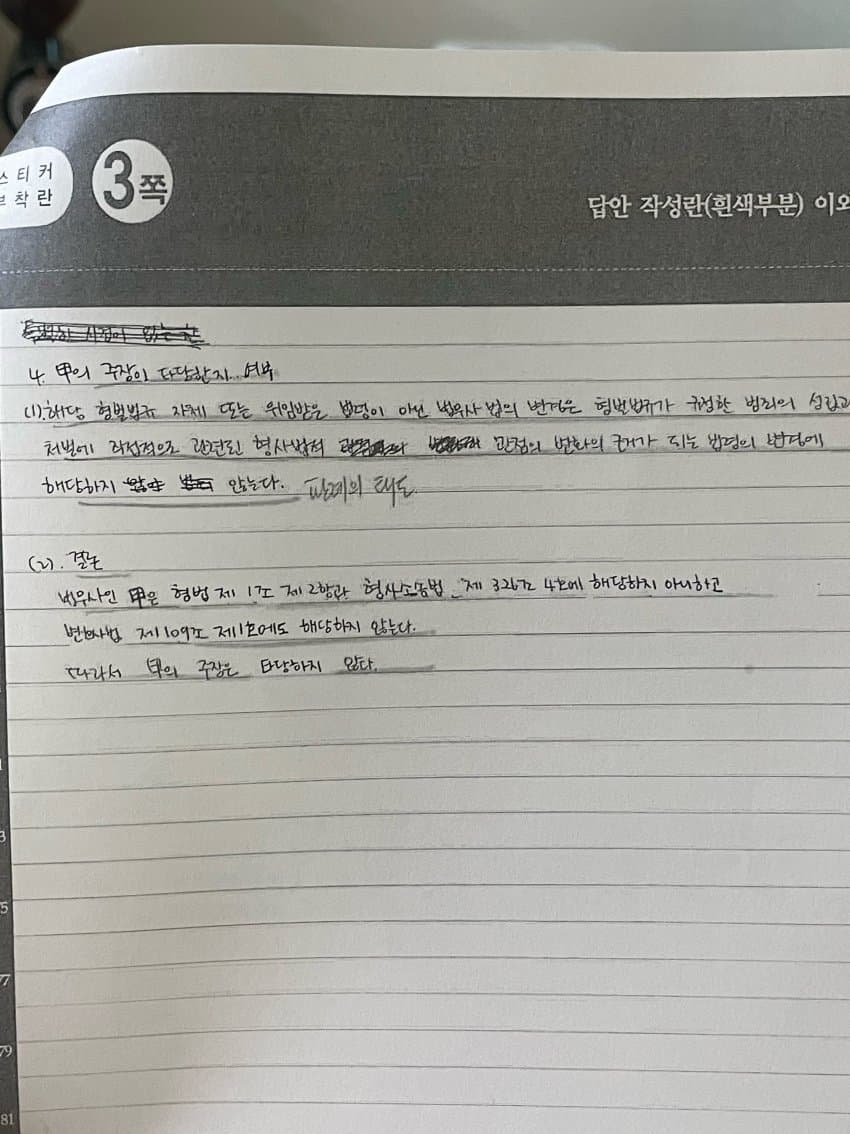 스티커
부착란
3쪽
답안 작성란(흰색부분) 이외
4. 甲의 주장이 타당한지 여부
(1). 해당 형벌법규 자체 또는 위임받은 법령이 아닌 법무사법의 변경은 형벌법규가 규정한 범죄의 성립과
처벌에 직접적으로 관련된 형사법적 관점의 변화의 근거가 되는 법령의 변경에
해당하지 않는다. 판례의 태도
(2). 결론
법무사인 甲은 형법 제1조 제2항과 형사소송법 제326조 4호에 해당하지 아니하고
변호사법 제109조 제1호에도 해당하지 않는다.
따라서 甲의 주장은 타당하지 않다.
3
75
77
79
81